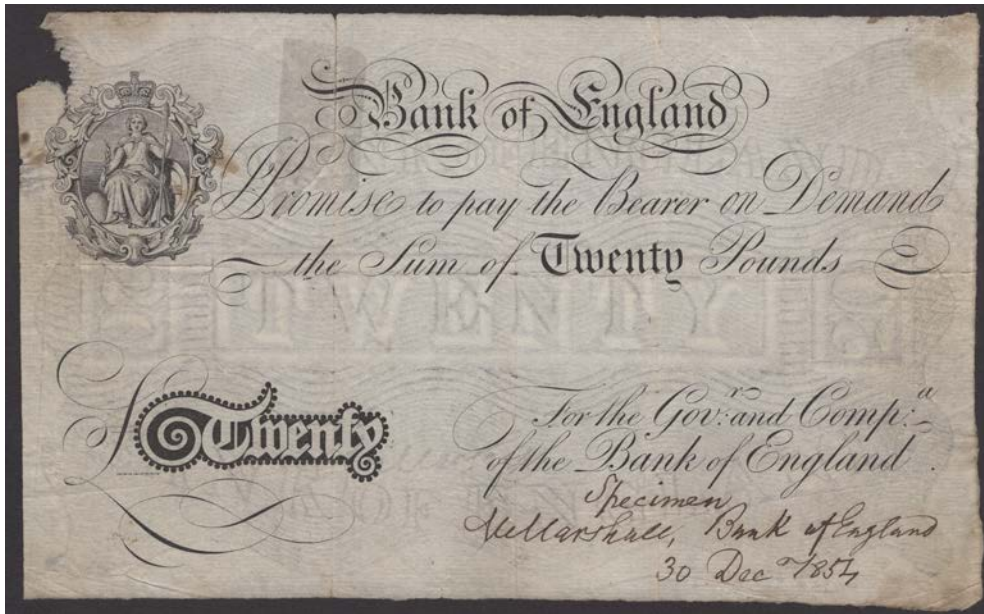 Bank of England
Promise to pay the Bearer on Demand
the Sum of Twenty Pounds
TWENTY
£ Twenty
For the Gov.r and Comp.a
of the Bank of England.
Specimen
M Marshall, Bank of England
30 Dec 1854